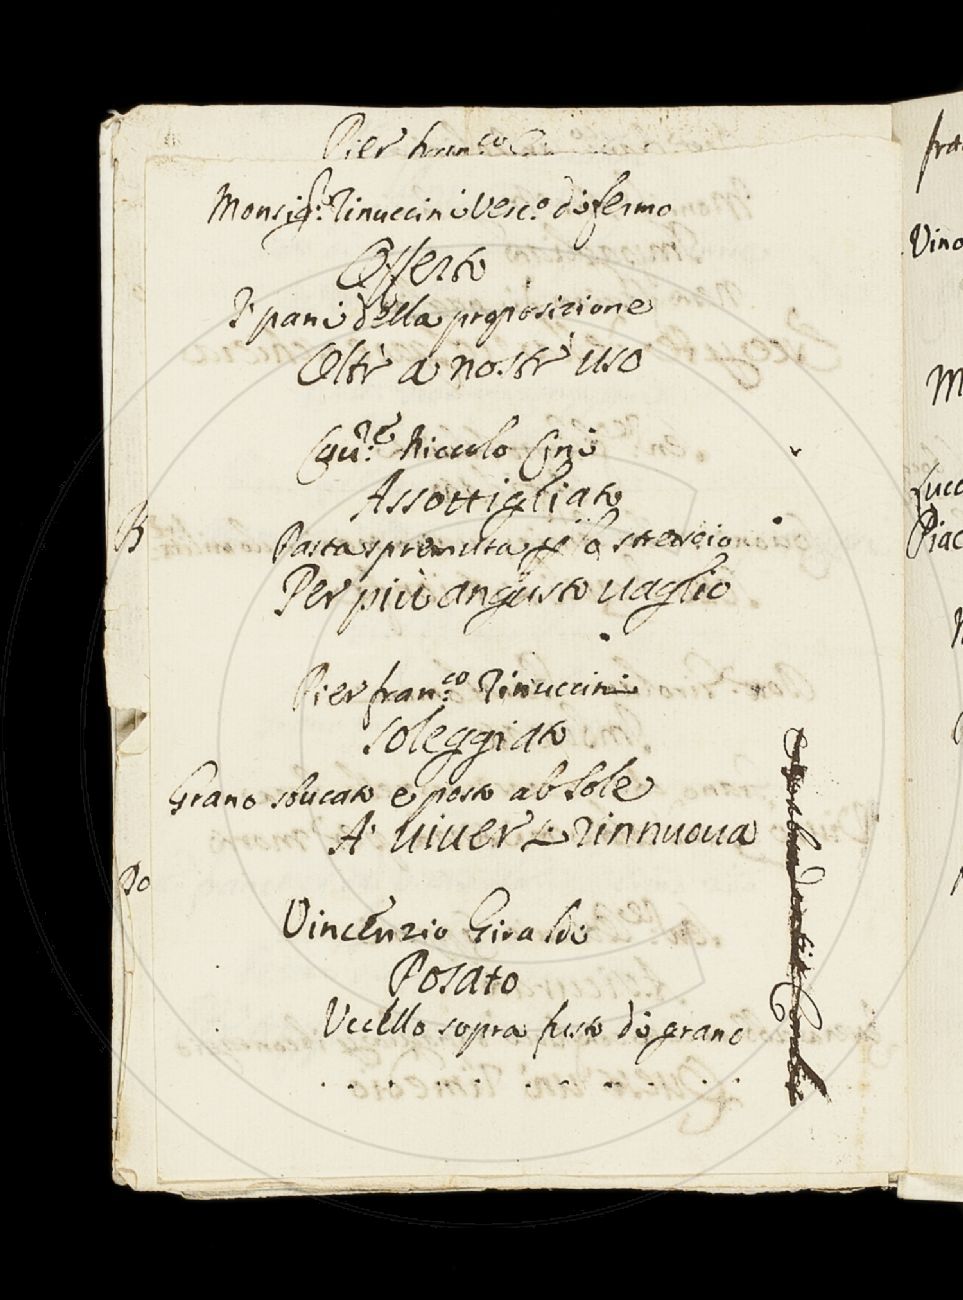 Pier fran.co
Monsig.r Rinuccini Vesc.o di fermo
Offerto
I' pani della proposizione
Oltr' a nostr' uso
Niccolo Cini
Assottigliato
B
Pasta spremuta p lo straccio
Per più angusto uaglio
Pier fran.co Rinuccini
Soleggiato
Grano sbucato e posto al Sole
A' uiuer si rinnuoua
Po
Vincenzio Giraldi
Posato
Vccello sopra fusto di grano
fra
Vino
M
Lucc
Piac